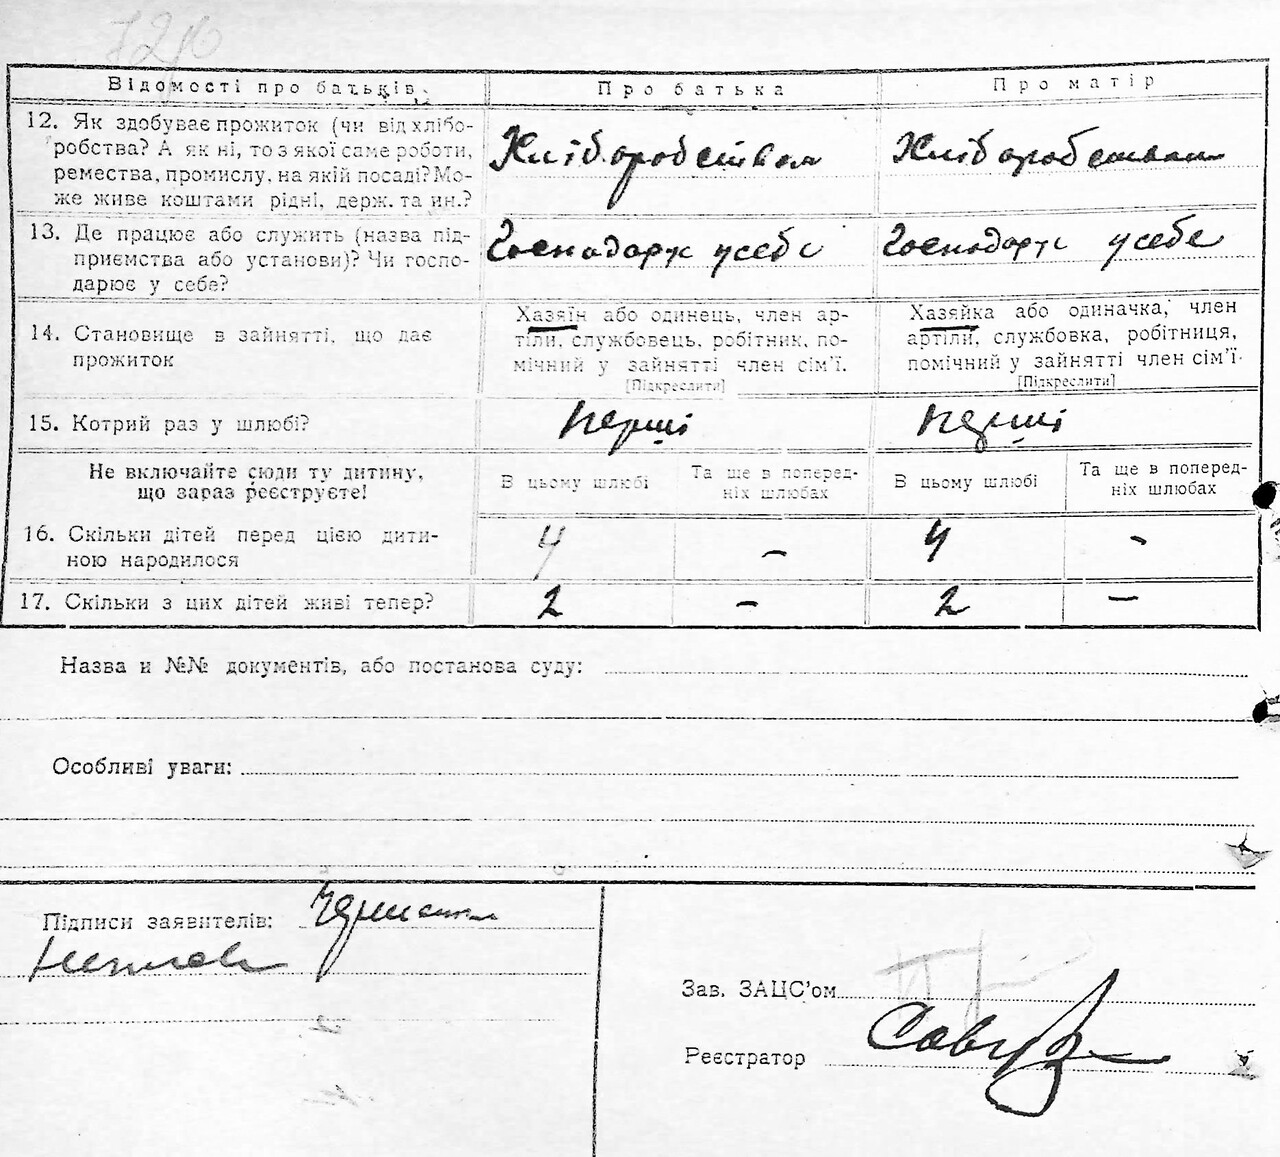 Відомості про батьків. Про батька Про матір
12. Як здобуває прожиток (чи від хлібо-
робства? А як ні, то з якої саме роботи,
ремества, промислу, на якій посаді? Мо-
же живе коштами рідні, держ. та ин.?
Хліборобством Хліборобством
13. Де працює або служить (назва під-
приємства або установи)? Чи госпо-
дарює у себе?
Господарює у себе Господарює у себе
14. Становище в зайнятті, що дає
прожиток
Хазяїн або одинець, член ар-
тіли, службовець, робітник, по-
мічний у зайнятті член сім'ї.
[Підкреслити]
Хазяйка або одиначка, член
артіли, службовка, робітниця,
помічний у зайнятті член сім'ї.
[Підкреслити]
15. Котрий раз у шлюбі? перший перший
Не включайте сюди ту дитину,
що зараз реєструєте!
В цьому шлюбі
Та ще в поперед-
ніх шлюбах
В цьому шлюбі
Та ще в поперед-
ніх шлюбах
16. Скільки дітей перед цією дити-
ною народилося
4 – 4 –
17. Скільки з цих дітей живі тепер? 2 – 2 –
Назва и №№ документів, або постанова суду:
Особливі уваги:
Підписи заявителів:
Зав. ЗАЦС'ом
Реєстратор